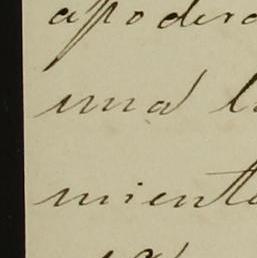 apodera
una l
miente